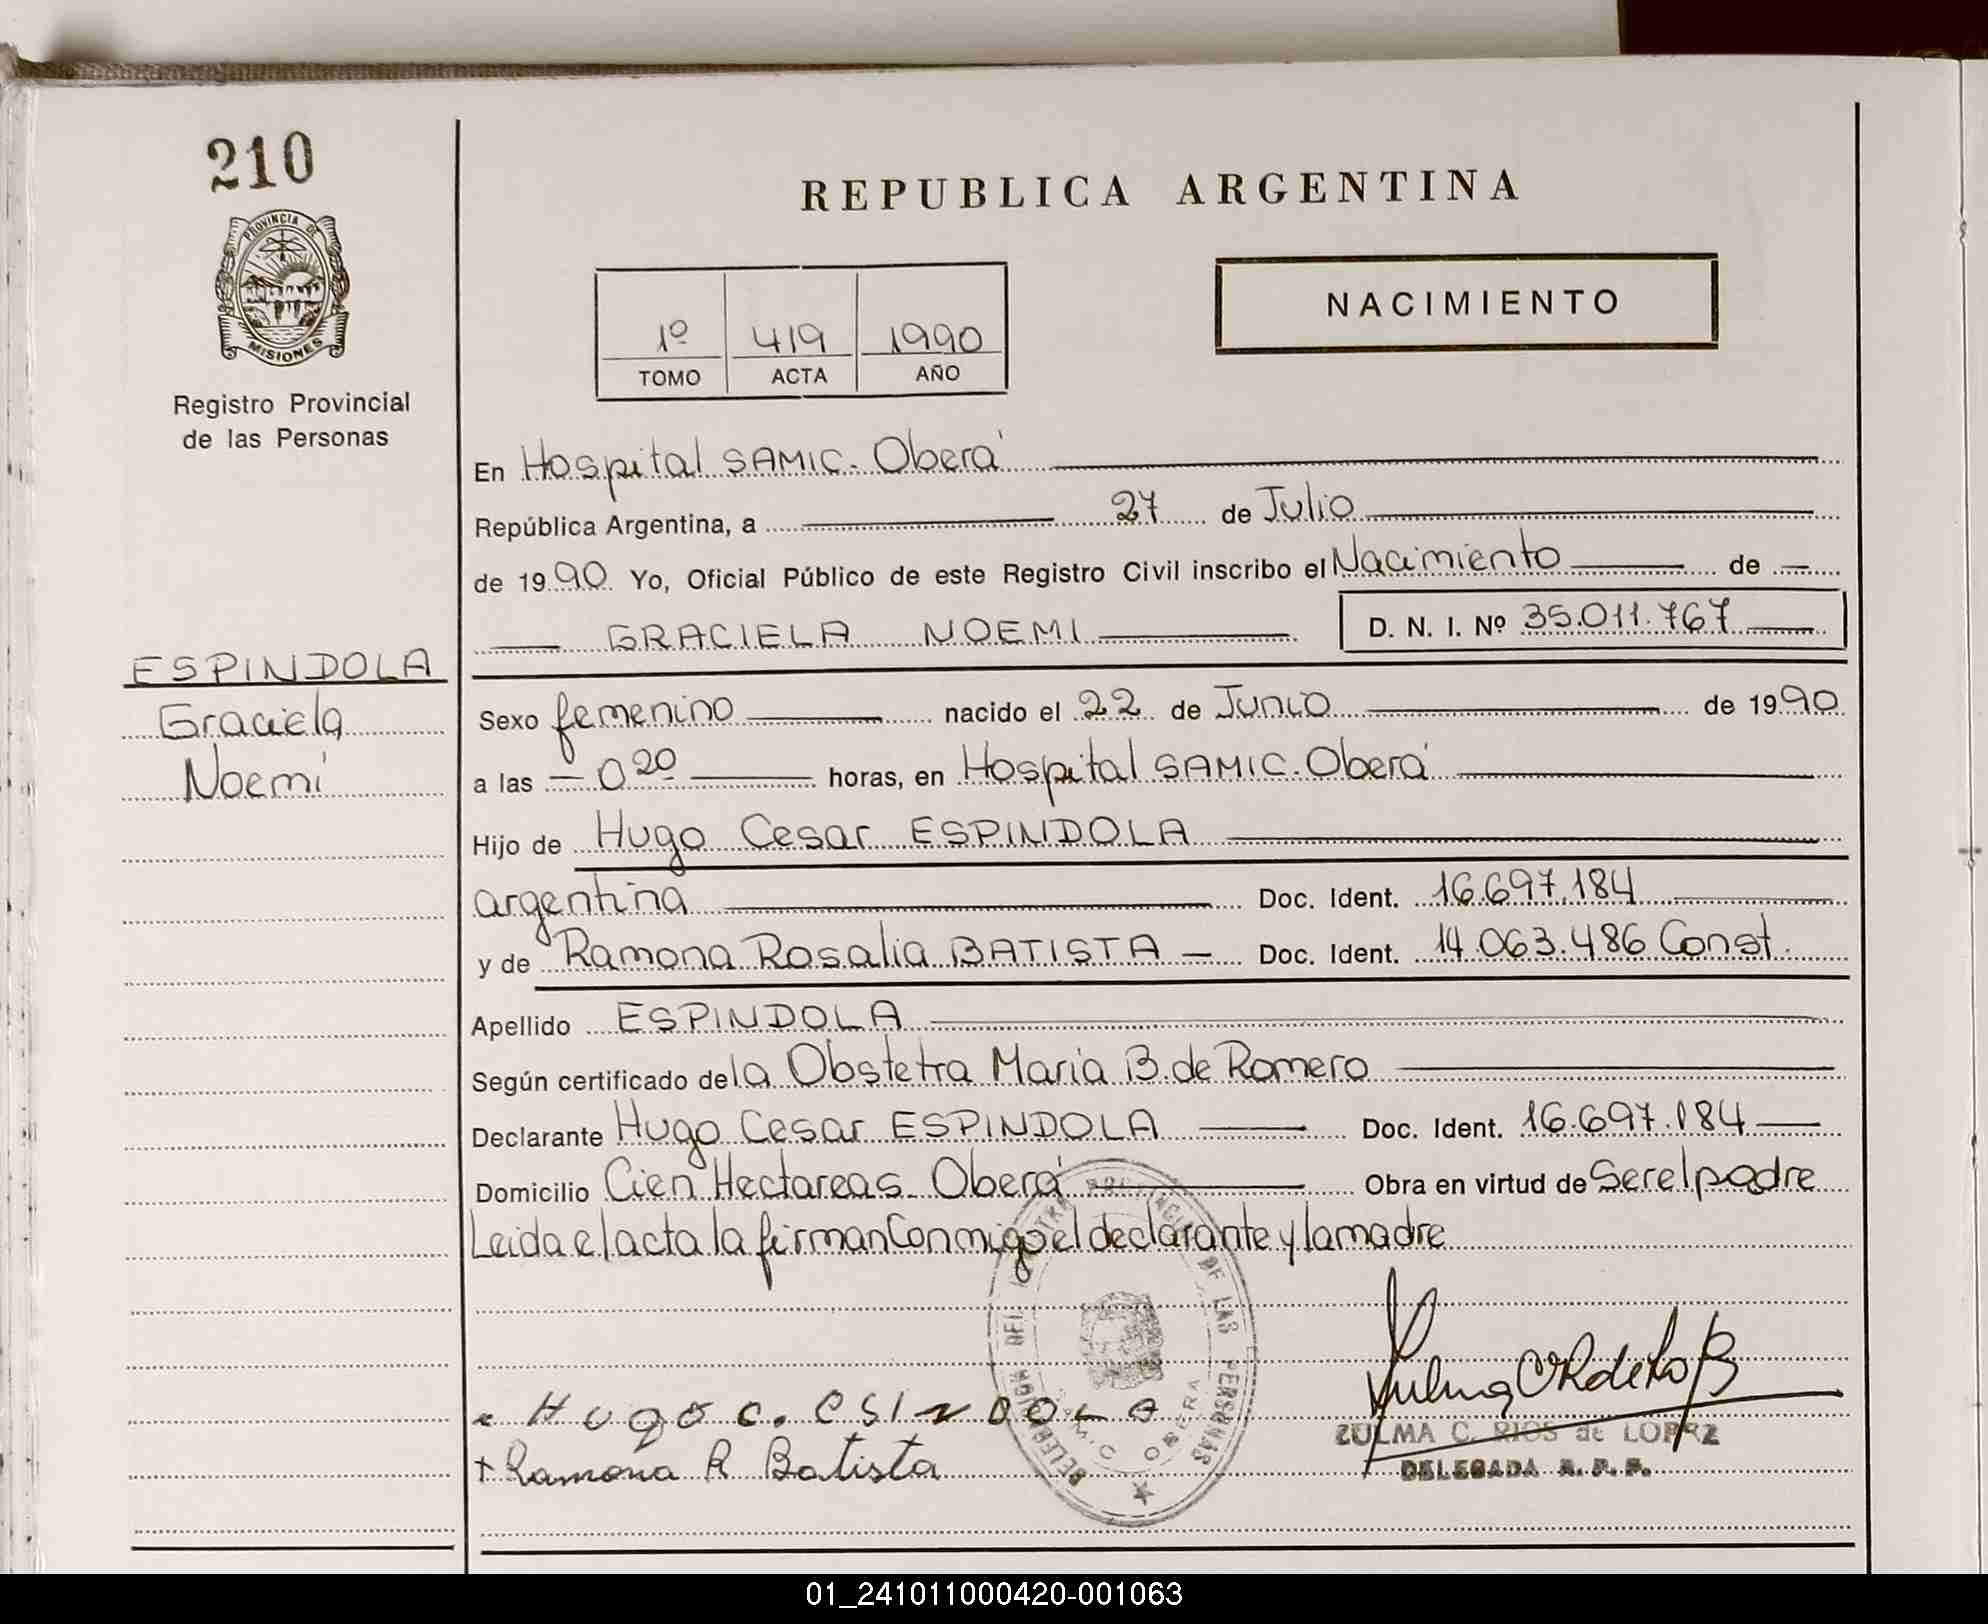 210
PROVINCIA DE
MISIONES
Registro Provincial
de las Personas
ESPINDOLA
Graciela
Noemí
REPUBLICA ARGENTINA
1º 419 1990
TOMO ACTA AÑO
NACIMIENTO
En Hospital SAMIC. Oberá
República Argentina, a 27 de Julio
de 1990 Yo, Oficial Público de este Registro Civil inscribo el Nacimiento de
GRACIELA NOEMI D. N. I. Nº 35.011.767
Sexo femenino nacido el 22 de Junio de 1990
a las 0 20 horas, en Hospital SAMIC. Oberá
Hijo de Hugo Cesar ESPINDOLA
argentina Doc. Ident. 16.697.184
y de Ramona Rosalia BATISTA Doc. Ident. 14.063.486 Const.
Apellido ESPINDOLA
Según certificado de la Obstetra Maria B. de Romero
Declarante Hugo Cesar ESPINDOLA Doc. Ident. 16.697.184
Domicilio Cien Hectareas. Oberá Obra en virtud de Ser el padre
Leida el acta la firman Conmigo el declarante y la madre
DELEGACION DEL REGISTRO PROVINCIAL DE LAS PERSONAS
OBERA
Hugo C. ESINDOLA
Ramona R Batista
ZULMA C. RIOS de LOPEZ
DELEGADA R. P. P.
01_241011000420-001063